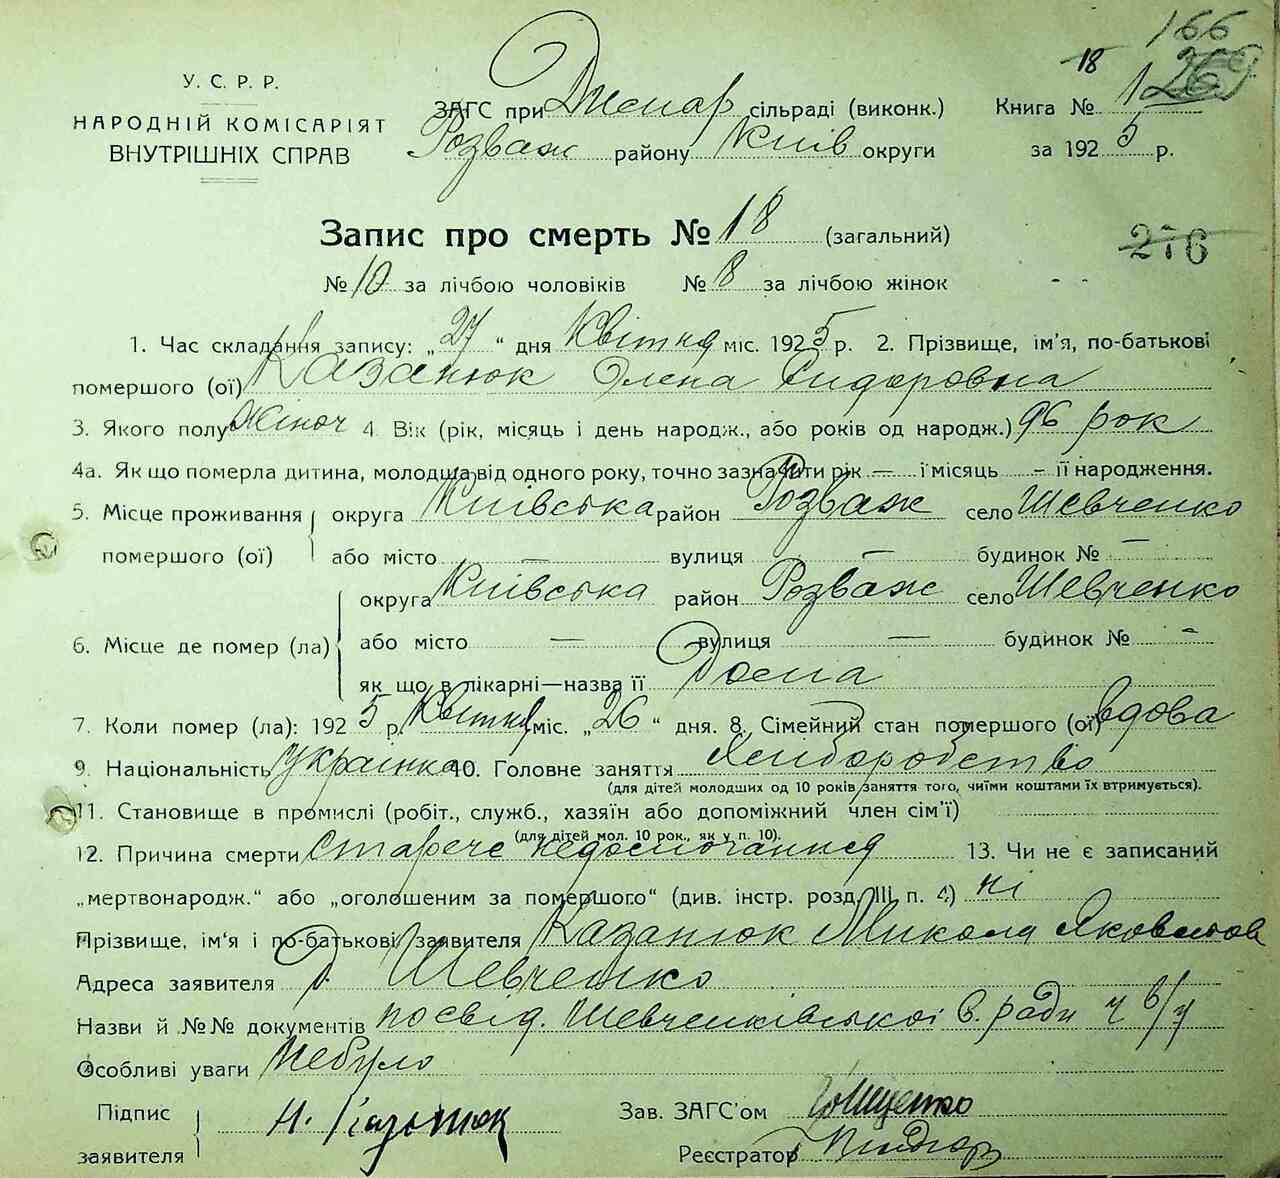 166
18
У. С. Р. Р.
НАРОДНІЙ КОМІСАРІЯТ
ВНУТРІШНІХ СПРАВ
ЗАГС при сільраді (виконк.) Книга № 1
Розваж району Київ округи за 1925 р.
Запис про смерть № 18 (загальний)
276
№ 10 за лічбою чоловіків № 8 за лічбою жінок
1. Час складання запису: „27“ дня Квітня міс. 1925 р. 2. Прізвище, ім'я, по-батькові
помершого (ої) Казанюк Олена Сидоровна
3. Якого полу Жіноч 4. Вік (рік, місяць і день народж., або років од народж.) 96 рок
4а. Як що померла дитина, молодша від одного року, точно зазначити рік — і місяць – її народження.
5. Місце проживання округа Київська район Розваж село Шевченко
помершого (ої) або місто — вулиця — будинок № —
округа Київська район Розваж село Шевченко
6. Місце де помер (ла) або місто — вулиця — будинок № –
як що в лікарні—назва її Дома
7. Коли помер (ла): 1925 р. Квітня міс. „26“ дня. 8. Сімейний стан помершого (ої) вдова
9. Національність українка 10. Головне заняття
(для дітей молодших од 10 років заняття того, чиїми коштами їх втримується).
11. Становище в промислі (робіт., служб., хазяїн або допоміжний член сім'ї)
(для дітей мол. 10 рок., як у п. 10).
12. Причина смерти Стареча 13. Чи не є записаний
„мертвонародж.“ або „оголошеним за помершого“ (див. інстр. розд. III п. 4) ні
Прізвище, ім'я і по-батькові заявителя Казанюк Микола Яковлєв
Адреса заявителя Д. Шевченко
Назви й №№ документів посвід. Шевченківської в. ради ч б/ч
Особливі уваги Небуло
Підпис
заявителя Н. Казанюк Зав. ЗАГС'ом
Реєстратор